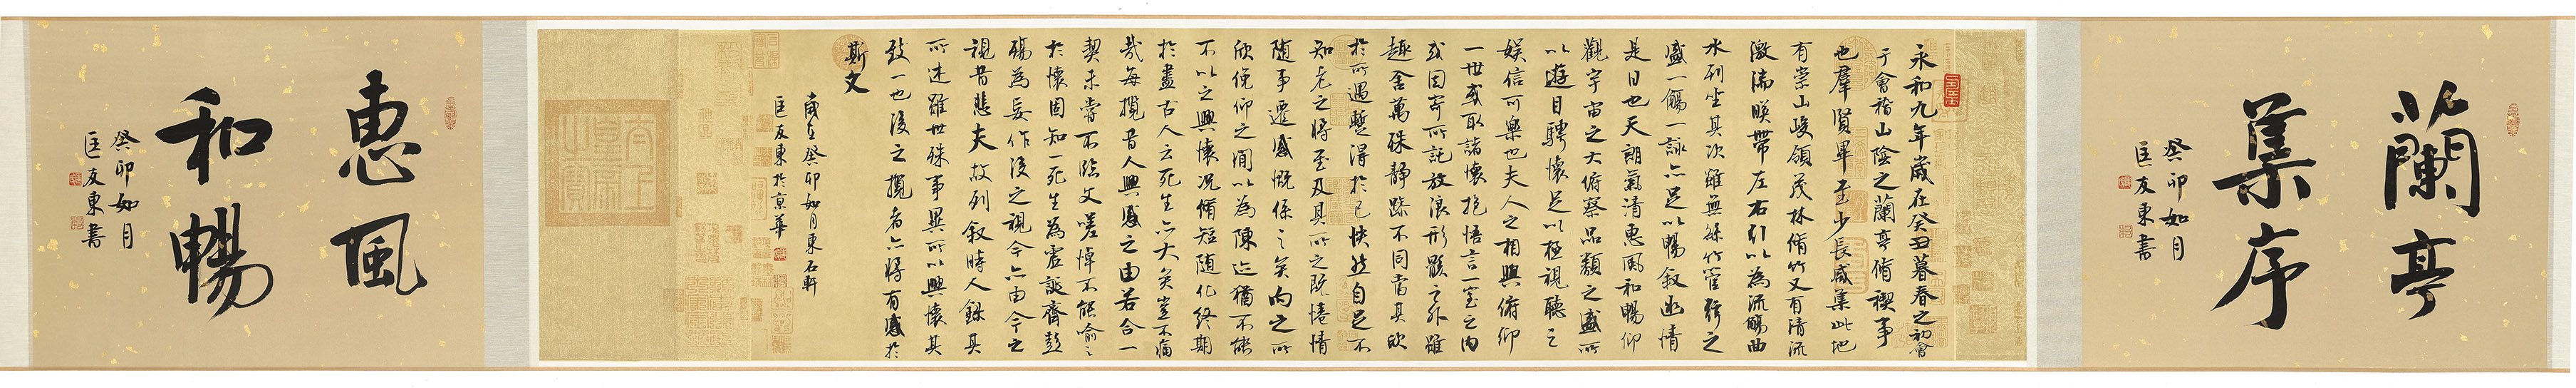 蘭亭
集序
癸卯如月
匡友東書
永和九年歲在癸丑暮春之初會
于會稽山陰之蘭亭脩禊事
也羣賢畢至少長咸集此地
有崇山峻領茂林脩竹又有清流
激湍暎帶左右引以為流觴曲
水列坐其次雖無絲竹管絃之
盛一觴一詠亦足以暢叙幽情
是日也天朗氣清惠風和暢仰
觀宇宙之大俯察品類之盛所
以遊目騁懷足以極視聽之
娛信可樂也夫人之相與俯仰
一世或取諸懷抱悟言一室之內
或因寄所託放浪形骸之外雖
趣舍萬殊靜躁不同當其欣
於所遇暫得於己快然自足不
知老之將至及其所之既惓情
隨事遷感慨係之矣向之所
欣俛仰之間以為陳迹猶不能
不以之興懷況脩短隨化終期
於盡古人云死生亦大矣豈不痛
哉每攬昔人興感之由若合一
契未嘗不臨文嗟悼不能喻之
於懷固知一死生為虛誕齊彭
殤為妄作後之視今亦由今之
視昔悲夫故列叙時人錄其
所述雖世殊事異所以興懷其
致一也後之攬者亦將有感於
斯文
歲在癸卯如月東石軒
匡友東於京華
惠風
和暢
癸卯如月
匡友東書